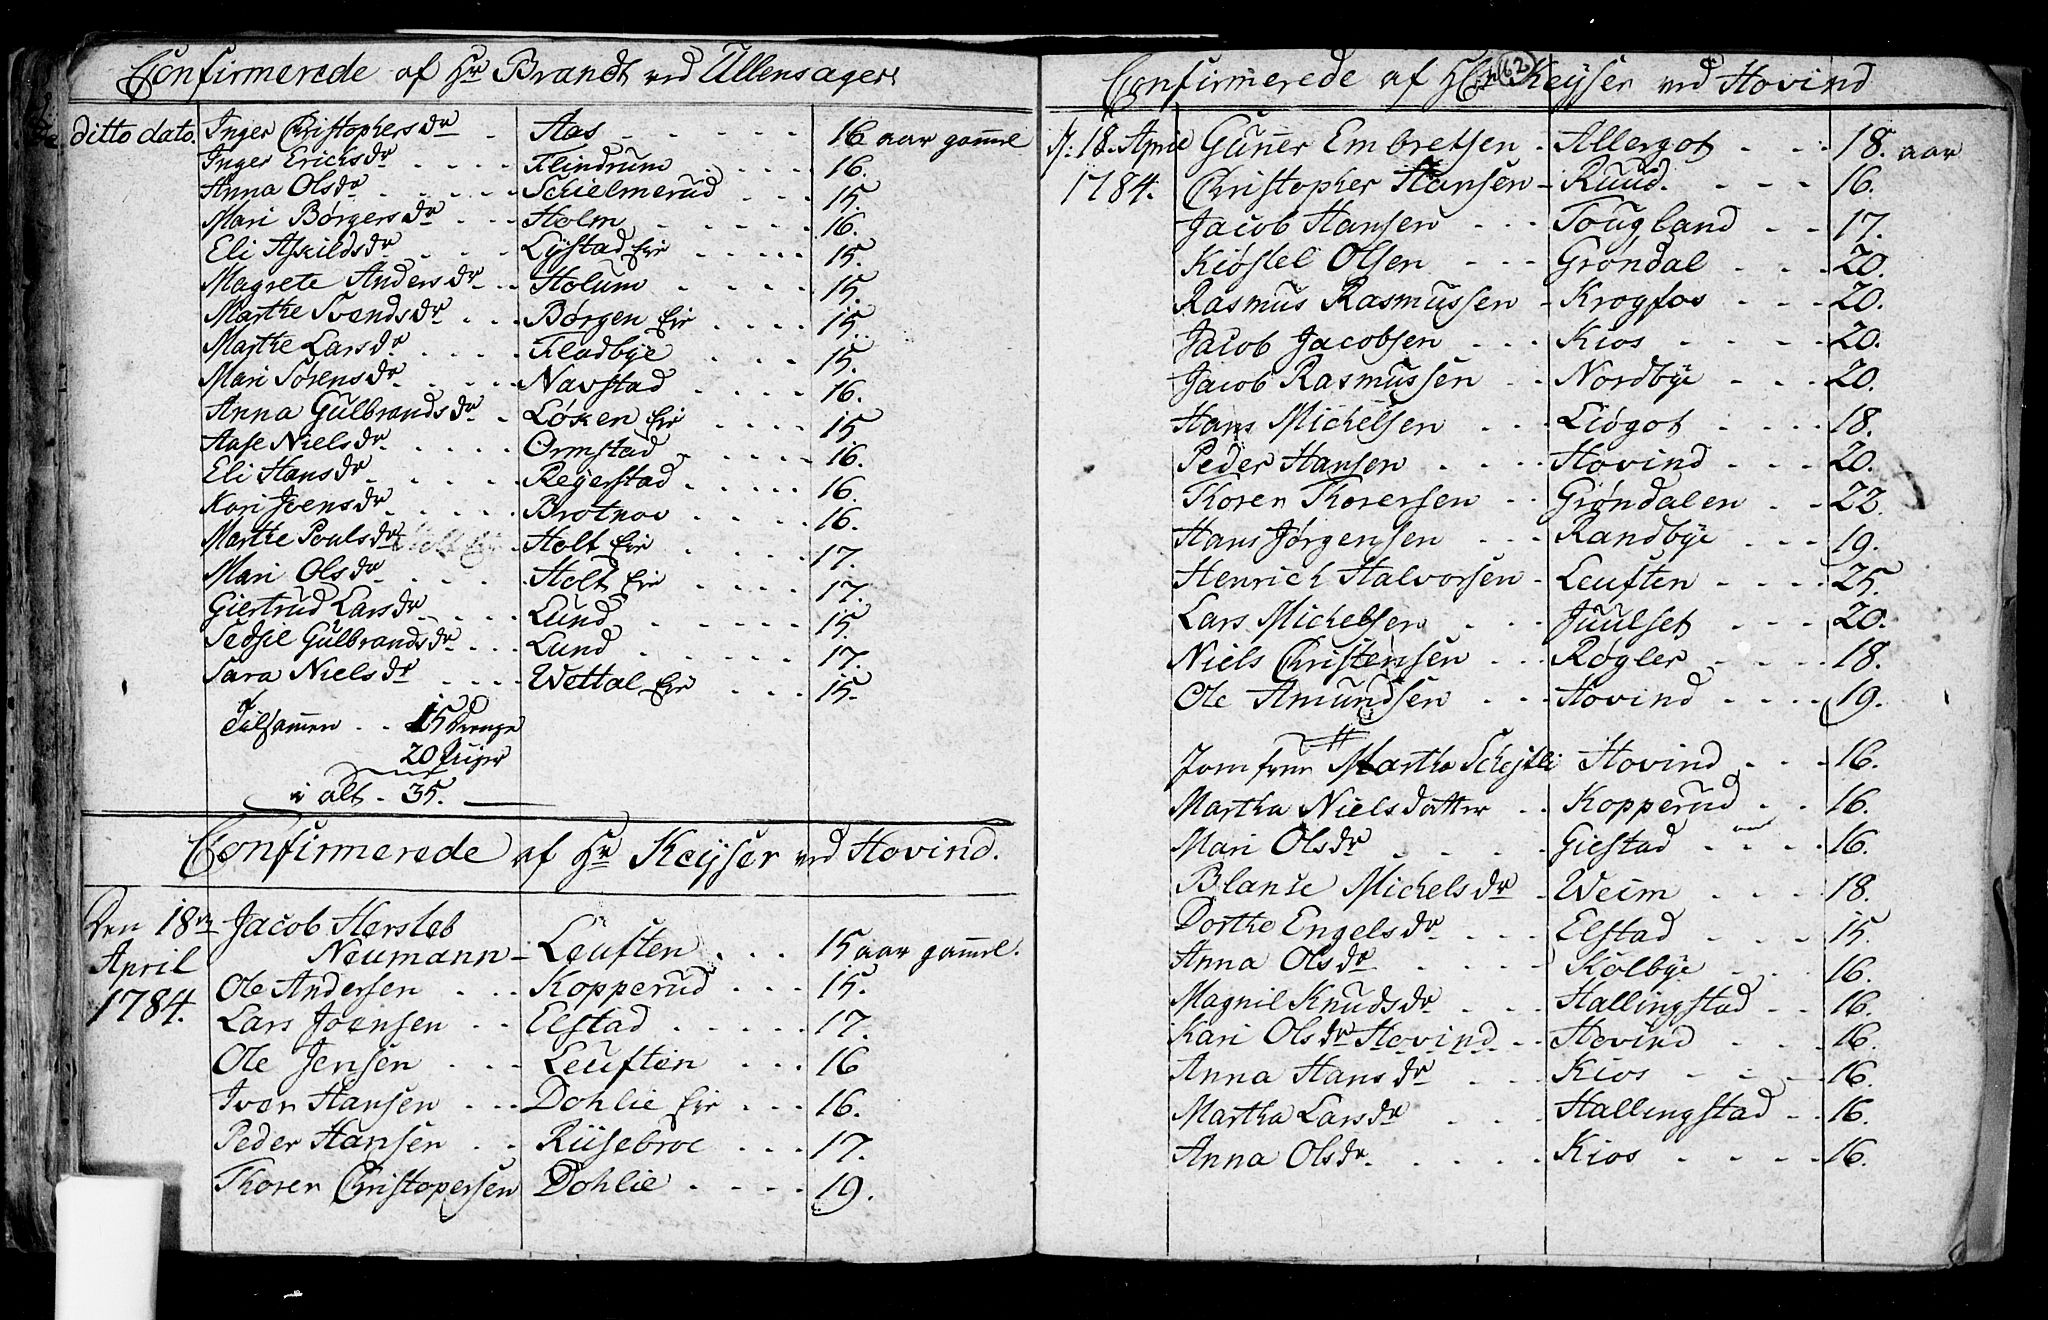 Confirmerede af Hr Brandt ved Ullensager
ditto dato. Inger Christophersdr - Aas - - - - - 16 aar gaml
Inger Ericksdr - - - Flindrum - - - - 16.
Anna Olsdr - - - - - Schielmerud - - - 15.
Mari Børgersdr - - - Holm - - - - - - 16.
Eli Askildsdr - - - - Lystad Eie - - - - - 15.
Magrete Andersdr - - - Holum - - - - 15.
Marthe Svendsdr - - - Børgen Eie - - - - 15.
Marthe Larsdr - - - - Fladbye - - - - 15.
Mari Sørensdr - - - - Navstad - - - - 16.
Anna Gulbrandsdr - - Løken Eie - - - - 15.
Aase Nielsdr - - - - - Ormstad - - - - - 16.
Eli Hansdr - - - - - Reyerstad - - - - - 16.
Kari Joensdr - - - - - Brotnoe - - - - 16.
Marthe Poulsdr Holt Eie - Holt Eie - - - - 17.
Mari Olsdr - - - - Holt Eie - - - - 17.
Giertrud Larsdr - - - - Lund - - - - - - 15.
Sedsel Gulbrandsdr - - - Lund - - - - - - 17.
Sara Nielsdr - - - - Wettal Eie - - - 15.
Tilsamen - - 15 Drenge
20 Piiger
i alt - 35.
Confirmerede af Hr Keyser ved Hovind.
Den 18de Jacob Hersleb
April Neumann - Leuften - - - 15 aar gaml.
1784. Ole Andersen - - - Kopperud - - - 15.
Lars Joensen - - Elstad - - - - - 17.
Ole Jensen - - - Leuften - - - 16
Iver Hansen - - - Dohlie Eie - - - 16.
Peder Hansen - - Riisebroe - - - 17.
Thorer Christopersen Dohlie - - - - 19.
62
Confirmerede af Hr Keyser ved Hovind
D: 18. April Guner Embretsen - Allergot - - - 18. aar
1784. Christopher Hansen - Ruud. - - - 16.
Jacob Hansen - - - Tougland - - 17.
Kiøstel Olsen - - - Grøndal - - - 20.
Rasmus Rasmussen - Krogfos - - - 20.
Jacob Jacobsen - - - Kios - - - - - 20.
Jacob Rasmussen - - Nordbye - - - 20.
Hans Michelsen - - - Liøgot - - - - 18.
Peder Hansen - - - - Hovind - - - 20.
Thorer Thorersen - - Grøndalen - - 22.
Hans Jørgensen - - - Randbye - - - 19.
Henrich Halvorsen - Leuften - - - - 25.
Lars Michelsen - - - Juulset - - - 20.
Niels Christensen - - - Røgler - - - - 18.
Ole Amundsen - - - Hovind - - - - 19.
Jomfrue Martha Hovind - - - 16.
Martha Nielsdatter - - Kopperud - - 16.
Mari Olsdr - - - - Giestad - - - - 16.
Blanse Michelsdr - Weim - - - - 18.
Dorthe Engelsdr - - - Elstad - - - 15.
Anna Olsdr - - - - - Kolbye - - - 16.
Magnil Knudsdr - - - Hallingstad - - 16.
Kari Olsdr Hovind - - Hovind - - - 16.
Anna Hansdr - - - Kios - - - - 16.
Martha Larsdr - - - Hallingstad - - 16.
Anna Olsdr - - - - - Kios - - - - - 16.